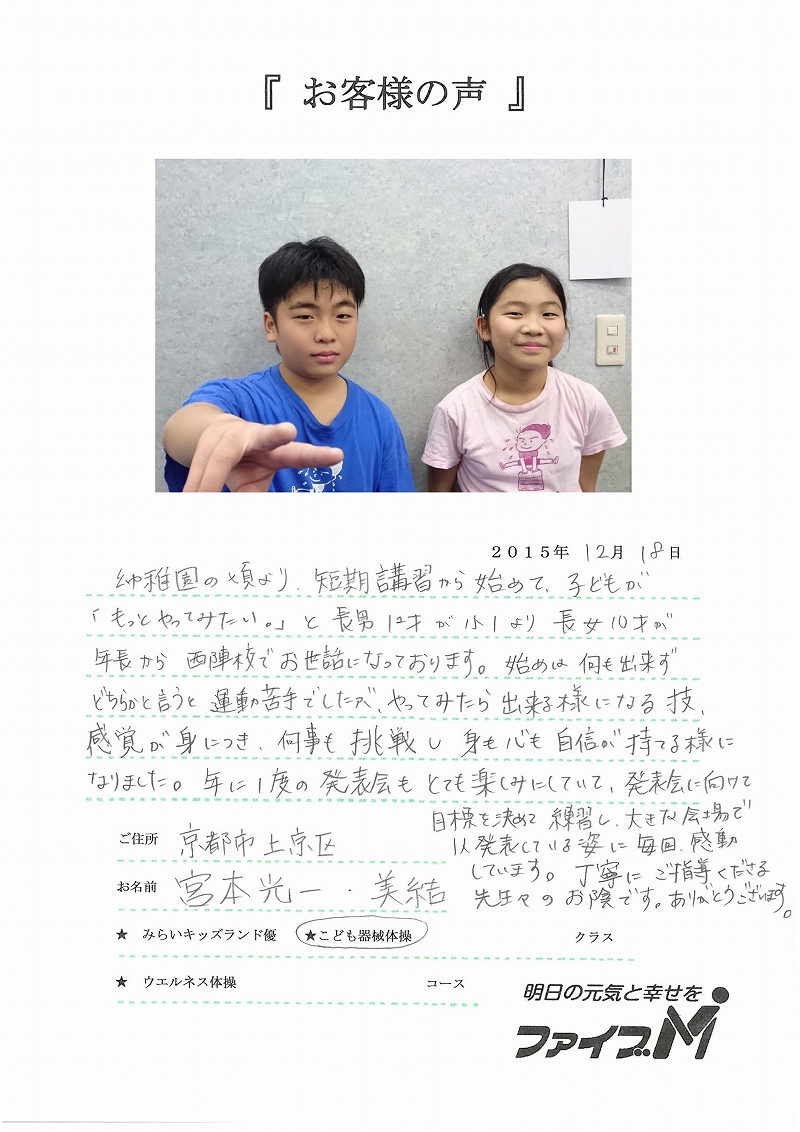 『 お客様の声 』
2015年 12月 18日
幼稚園の頃より、短期講習から始めて、子どもが
「もっとやってみたい。」と 長男12才が小1より 長女10才が
年長から 西陣校でお世話になっております。始めは何も出来ず
どちらかと言うと 運動苦手でしたが、やってみたら出来る様になる技、
感覚が身につき、何事も挑戦し 身も心も自信が持てる様に
なりました。年に1度の発表会もとても楽しみにしていて、発表会に向けて
目標を決めて練習し、大きな会場で
1人発表している姿に毎回、感動
しています。丁寧にご指導くださる
先生々のお陰です。ありがとうございます。
ご住所 京都市上京区
お名前 宮本光一・美結
★ みらいキッズランド優 ★こども器械体操 クラス
★ ウエルネス体操 コース
明日の元気と幸せを
ファイブM